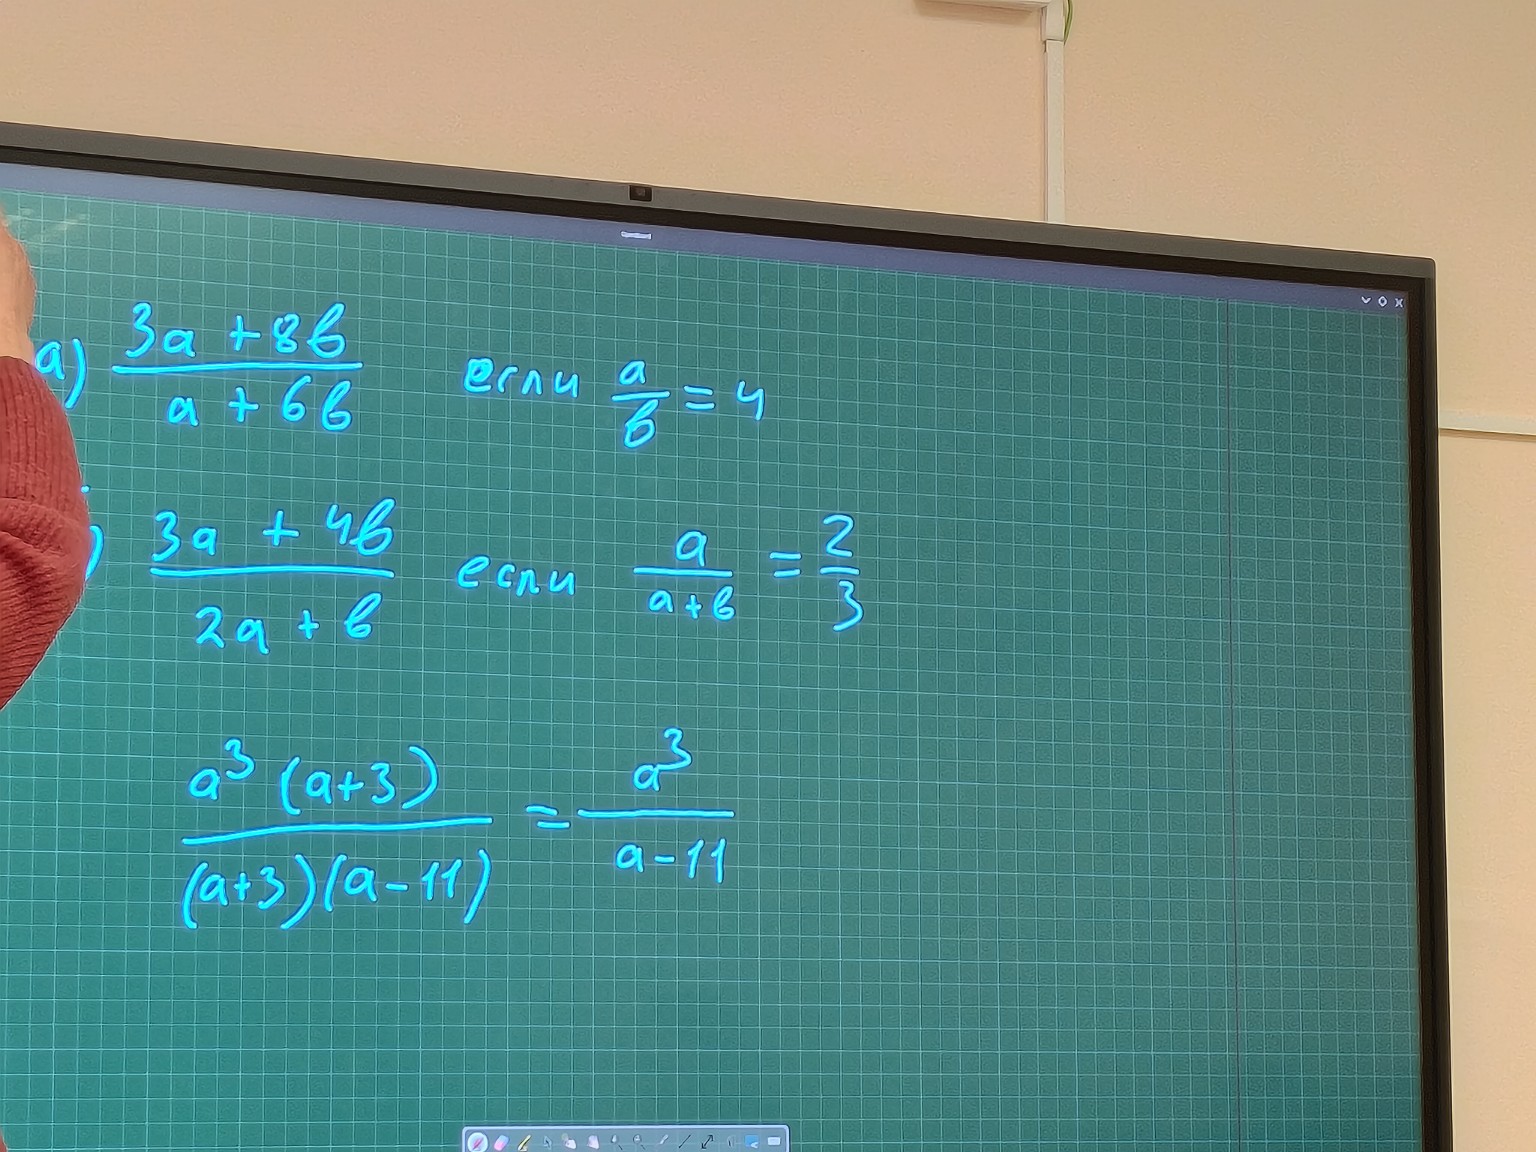 а) (3a + 8b)/(a + 6b) если a/b = 4
) (3a + 4b)/(2a + b) если a/(a+b) = 2/3
a³ (a+3)/((a+3)(a-11)) = a³/(a-11)